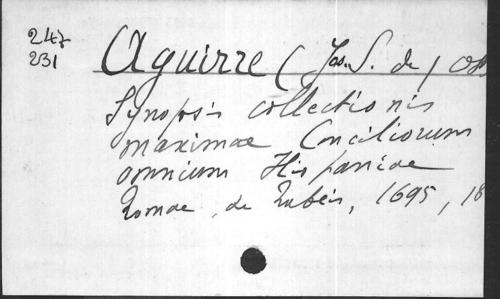 247
231
Aguirre (Jos. S. de)
Synopsis collectionis
maximae Conciliorum
omnium Hispaniae
Romae, de Rubeis, 1695, 18